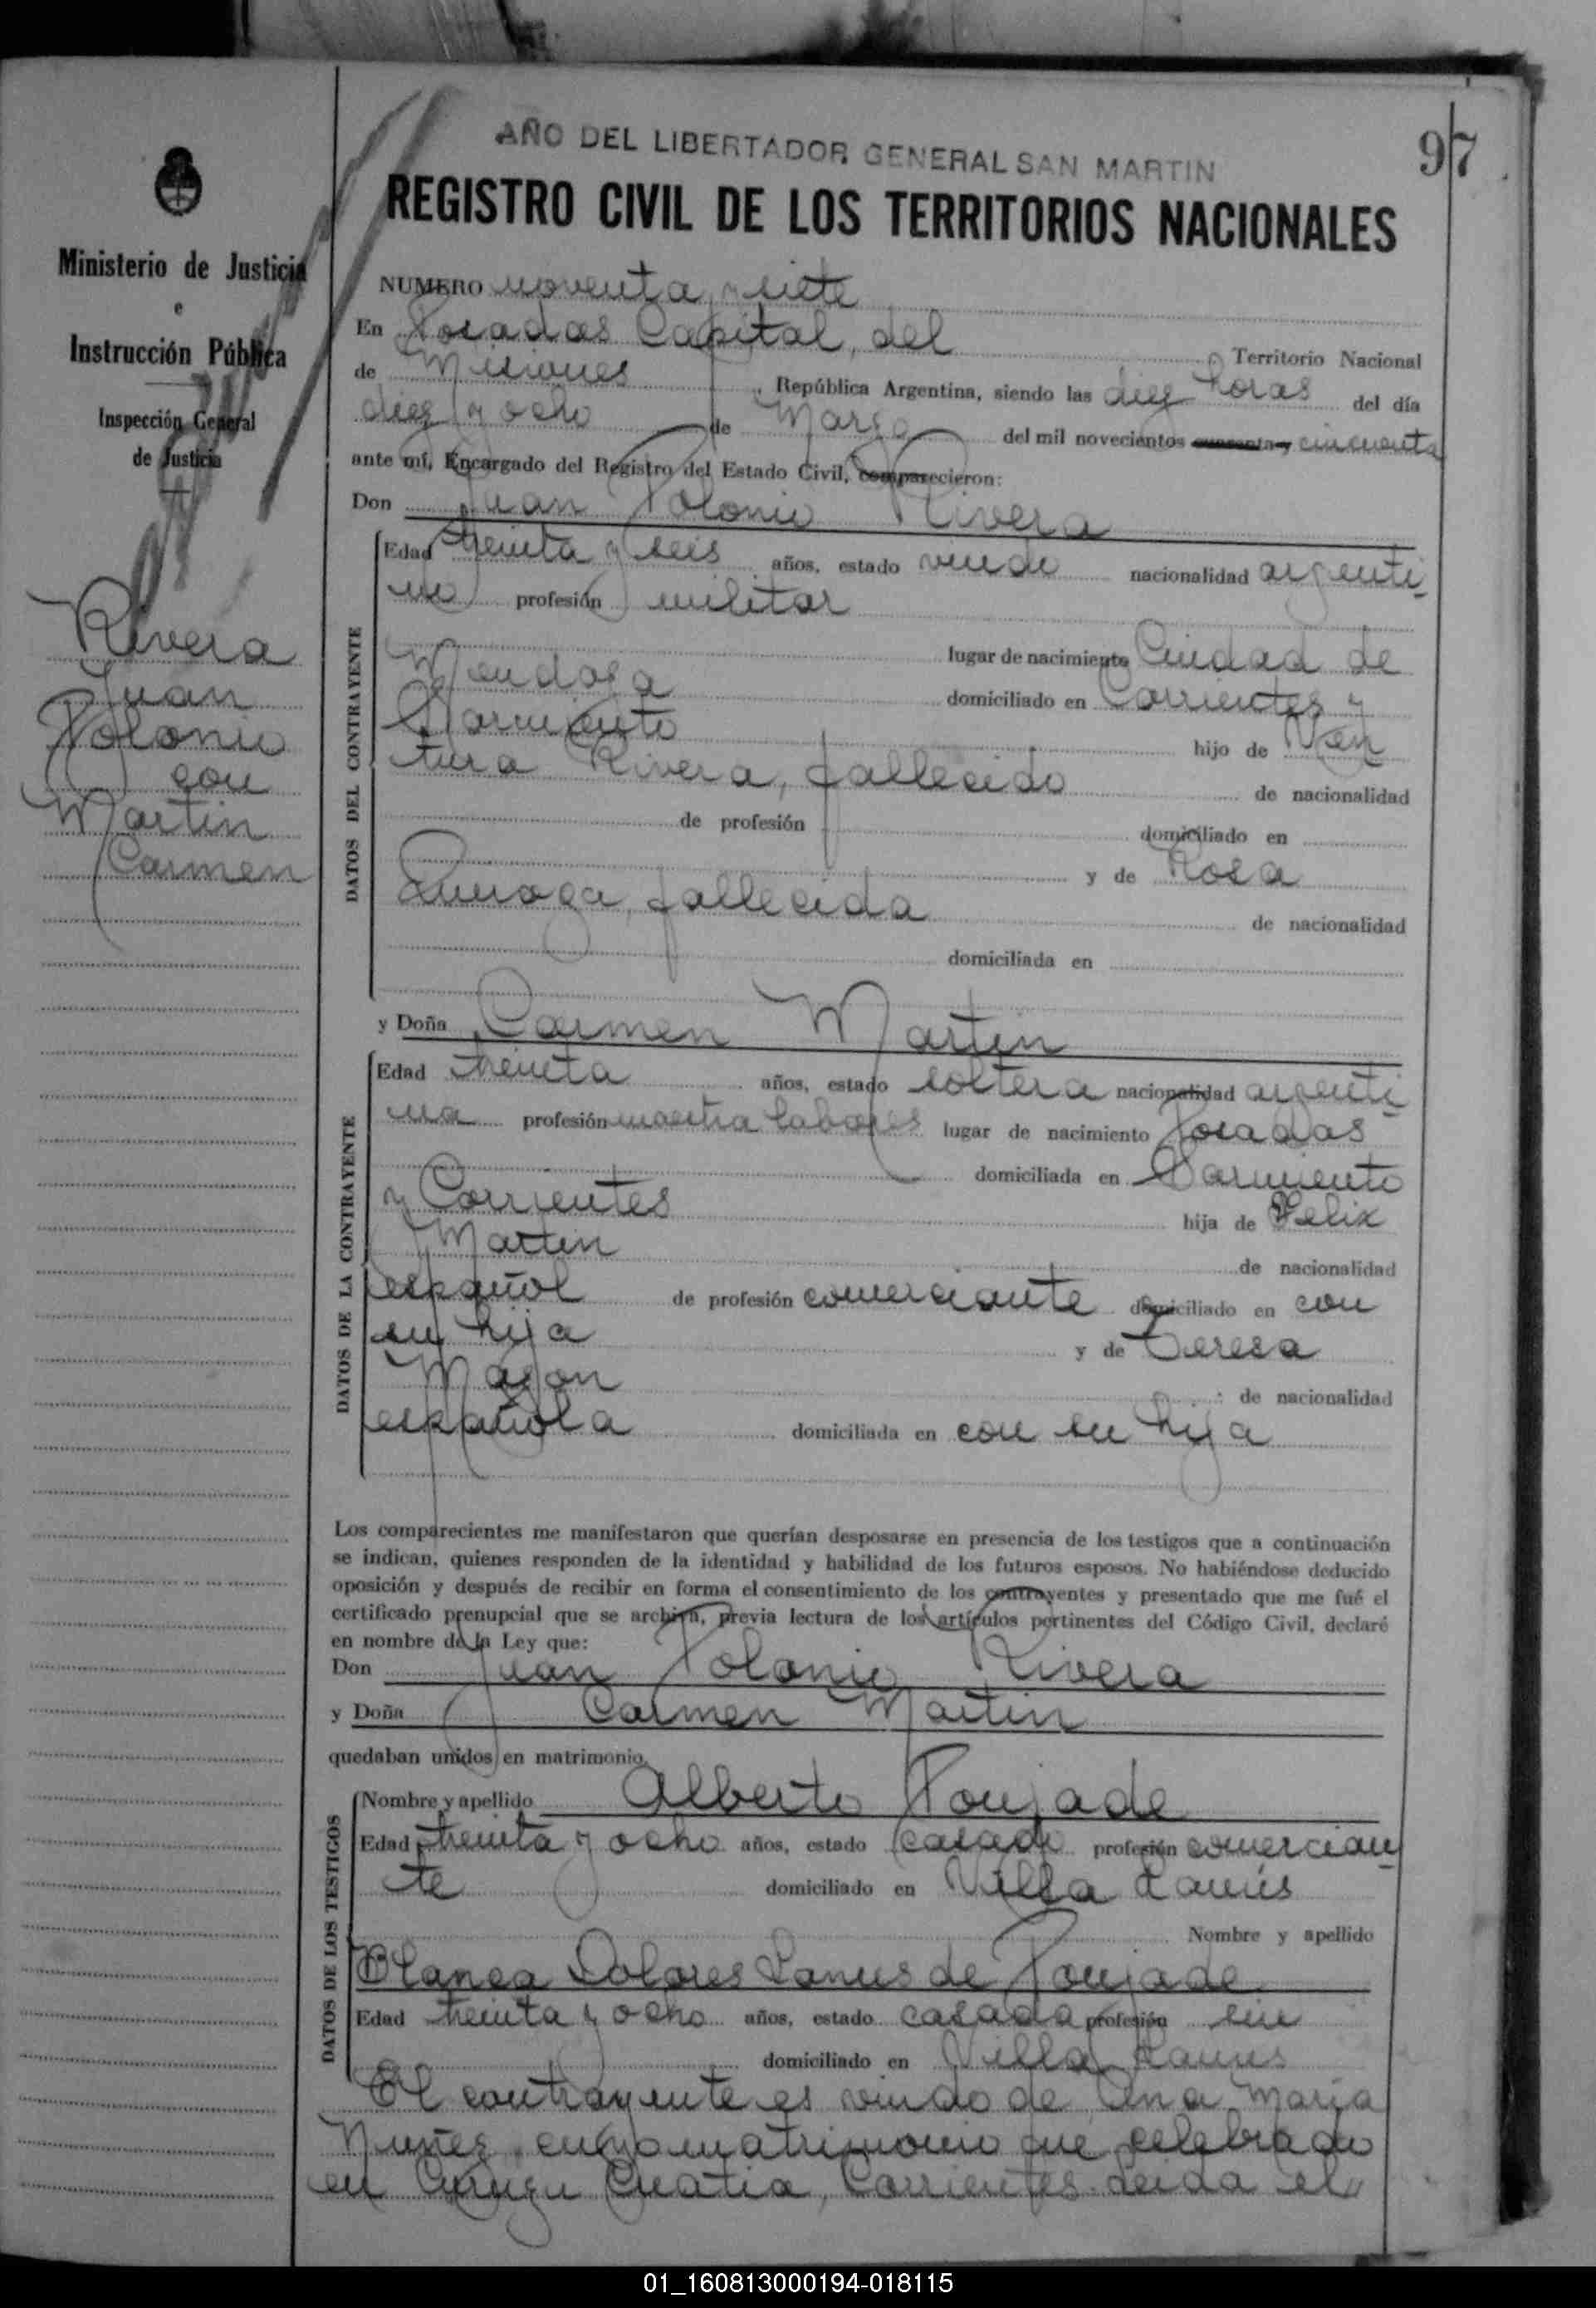 AÑO DEL LIBERTADOR GENERAL SAN MARTIN
97
REGISTRO CIVIL DE LOS TERRITORIOS NACIONALES
Ministerio de Justicia
e
Instrucción Pública
Inspección General
de Justicia
Rivera
Juan
Polonio
con
Martin
Carmen
NUMERO noventa y siete
En Posadas Capital, del Territorio Nacional
de Misiones, República Argentina, siendo las diez horas del día
diez y ocho de Marzo del mil novecientos cuarenta y cincuenta
ante mí, Encargado del Registro del Estado Civil, comparecieron:
Don Juan Polonio Rivera
DATOS DEL CONTRAYENTE
Edad treinta y seis años, estado viudo nacionalidad argenti-
no profesión militar
lugar de nacimiento Ciudad de
Mendoza domiciliado en Corrientes y
Sarmiento hijo de Ven
tura Rivera, fallecido de nacionalidad
de profesión domiciliado en
y de Rosa
Quiroga, fallecida de nacionalidad
domiciliada en
y Doña Carmen Martin
DATOS DE LA CONTRAYENTE
Edad treinta años, estado soltera nacionalidad argenti-
na profesión maestra labores lugar de nacimiento Posadas
domiciliada en Sarmiento
y Corrientes hija de Felix
Martin de nacionalidad
español de profesión comerciante domiciliado en con
su hija y de Teresa
Mayon de nacionalidad
española domiciliada en con su hija
Los comparecientes me manifestaron que querían desposarse en presencia de los testigos que a continuación
se indican, quienes responden de la identidad y habilidad de los futuros esposos. No habiéndose deducido
oposición y después de recibir en forma el consentimiento de los contrayentes y presentado que me fué el
certificado prenupcial que se archiva, previa lectura de los artículos pertinentes del Código Civil, declaré
en nombre de la Ley que:
Don Juan Polonio Rivera
y Doña Carmen Martin
quedaban unidos en matrimonio.
DATOS DE LOS TESTIGOS
Nombre y apellido Alberto Poujade
Edad treinta y ocho años, estado casado profesión comercian-
te domiciliado en Villa Lanús
Nombre y apellido
Blanca Dolores Lanus de Poujade
Edad treinta y ocho años, estado casada profesión sin
domiciliado en Villa Lanus
El contrayente es viudo de Ana Maria
Nuñez, cuyo matrimonio fue celebrado
en Curuzu Cuatia, Corrientes. Leida el
01_160813000194-018115